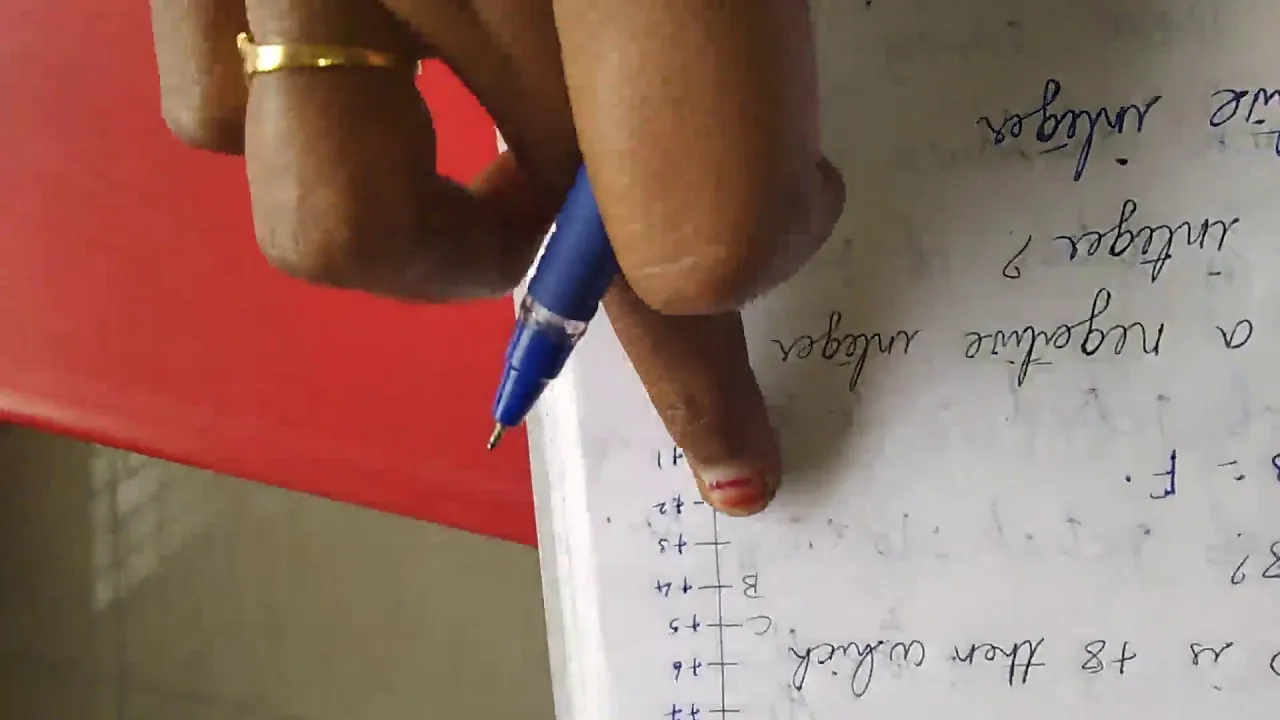 is +8 then which
+7
+6
C +5
B +4
B?
+3
+2
- F.
+1
a negative integer
integer?
integer